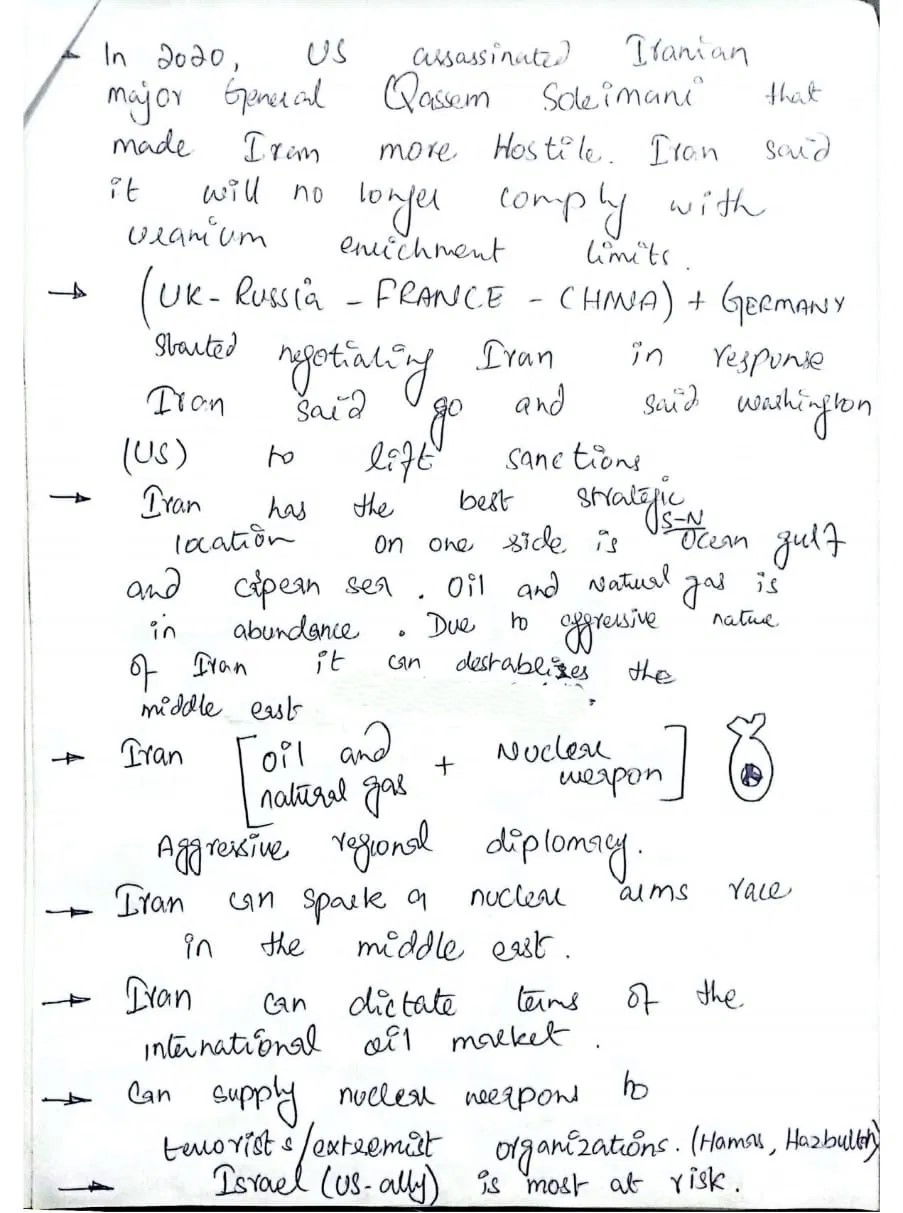 → In 2020, US assassinated Iranian
major General Qassem Soleimani that
made Iran more Hostile. Iran said
it will no longer comply with
uranium enrichment limits.
→ (UK - Russia - FRANCE - CHINA) + GERMANY
started negotiating Iran in response
Iran said go and said washington
(US) to lift sanctions
→ Iran has the best strategic
location on one side is S-N Ocean gulf
and Cipean sea. Oil and Natural gas is
in abundance. Due to aggressive nature
of Iran it can destablizes the
middle east
→ Iran [oil and natural gas + Nuclear weapon]
Aggressive regional diplomacy.
→ Iran can spark a nuclear arms race
in the middle east.
→ Iran can dictate terms of the
international oil market.
→ Can supply nuclear weapons to
terrorists/extremist organizations. (Hamas, Hazbullah)
→ Israel (US-ally) is most at risk.